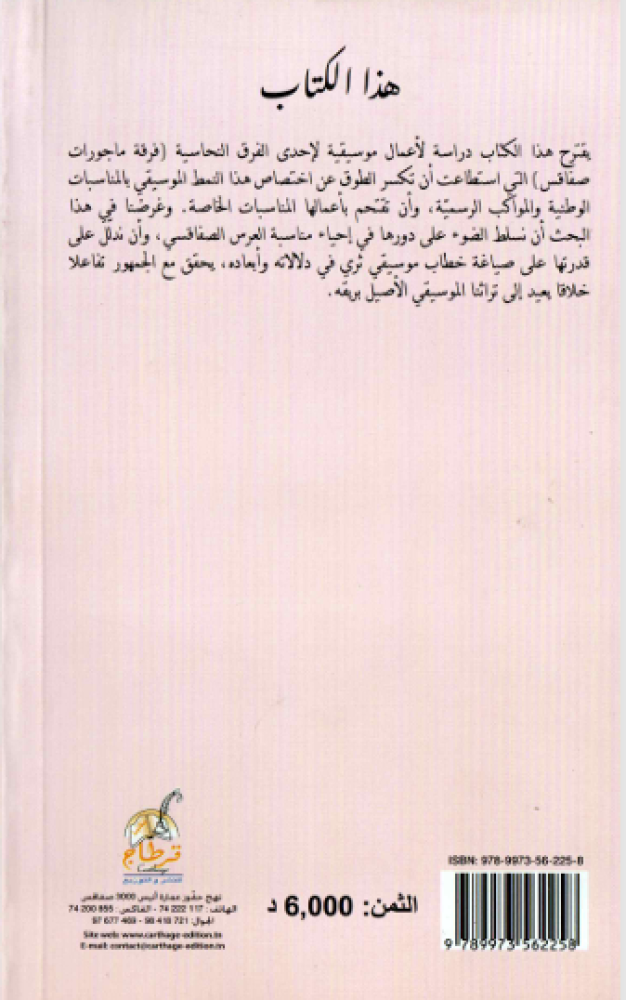 هذا الكتاب
يقترح هذا الكتاب دراسة لأعمال موسيقية لإحدى الفرق النحاسية (فرقة ماجورات
صفاقس) التي استطاعت أن تكسر الطوق عن اختصاص هذا النمط الموسيقي بالمناسبات
الوطنية والمواكب الرسميّة، وأن تقتحم بأعمالها المناسبات الخاصة. وغرضنا في هذا
البحث أن نسلط الضوء على دورها في إحياء مناسبة العرس الصفاقسي، وأن ندلل على
قدرتها على صياغة خطاب موسيقي ثري في دلالاته وأبعاده، يحقق مع الجمهور تفاعلا
خلاقا يعيد إلى تراثنا الموسيقي الأصيل بريقه.
قرطاج
Carthage
للنشر والتوزيع
نهج عمارة أنيس 3000 صفاقس
الهاتف: 117 222 74 - الفاكس: 855 200 74
الجوال: 721 418 98 - 469 677 97
Site web: www.carthage-edition.tn
E-mail: contact@carthage-edition.tn
الثمن: 6,000 د
ISBN: 978-9973-56-225-8
9 789973 562258